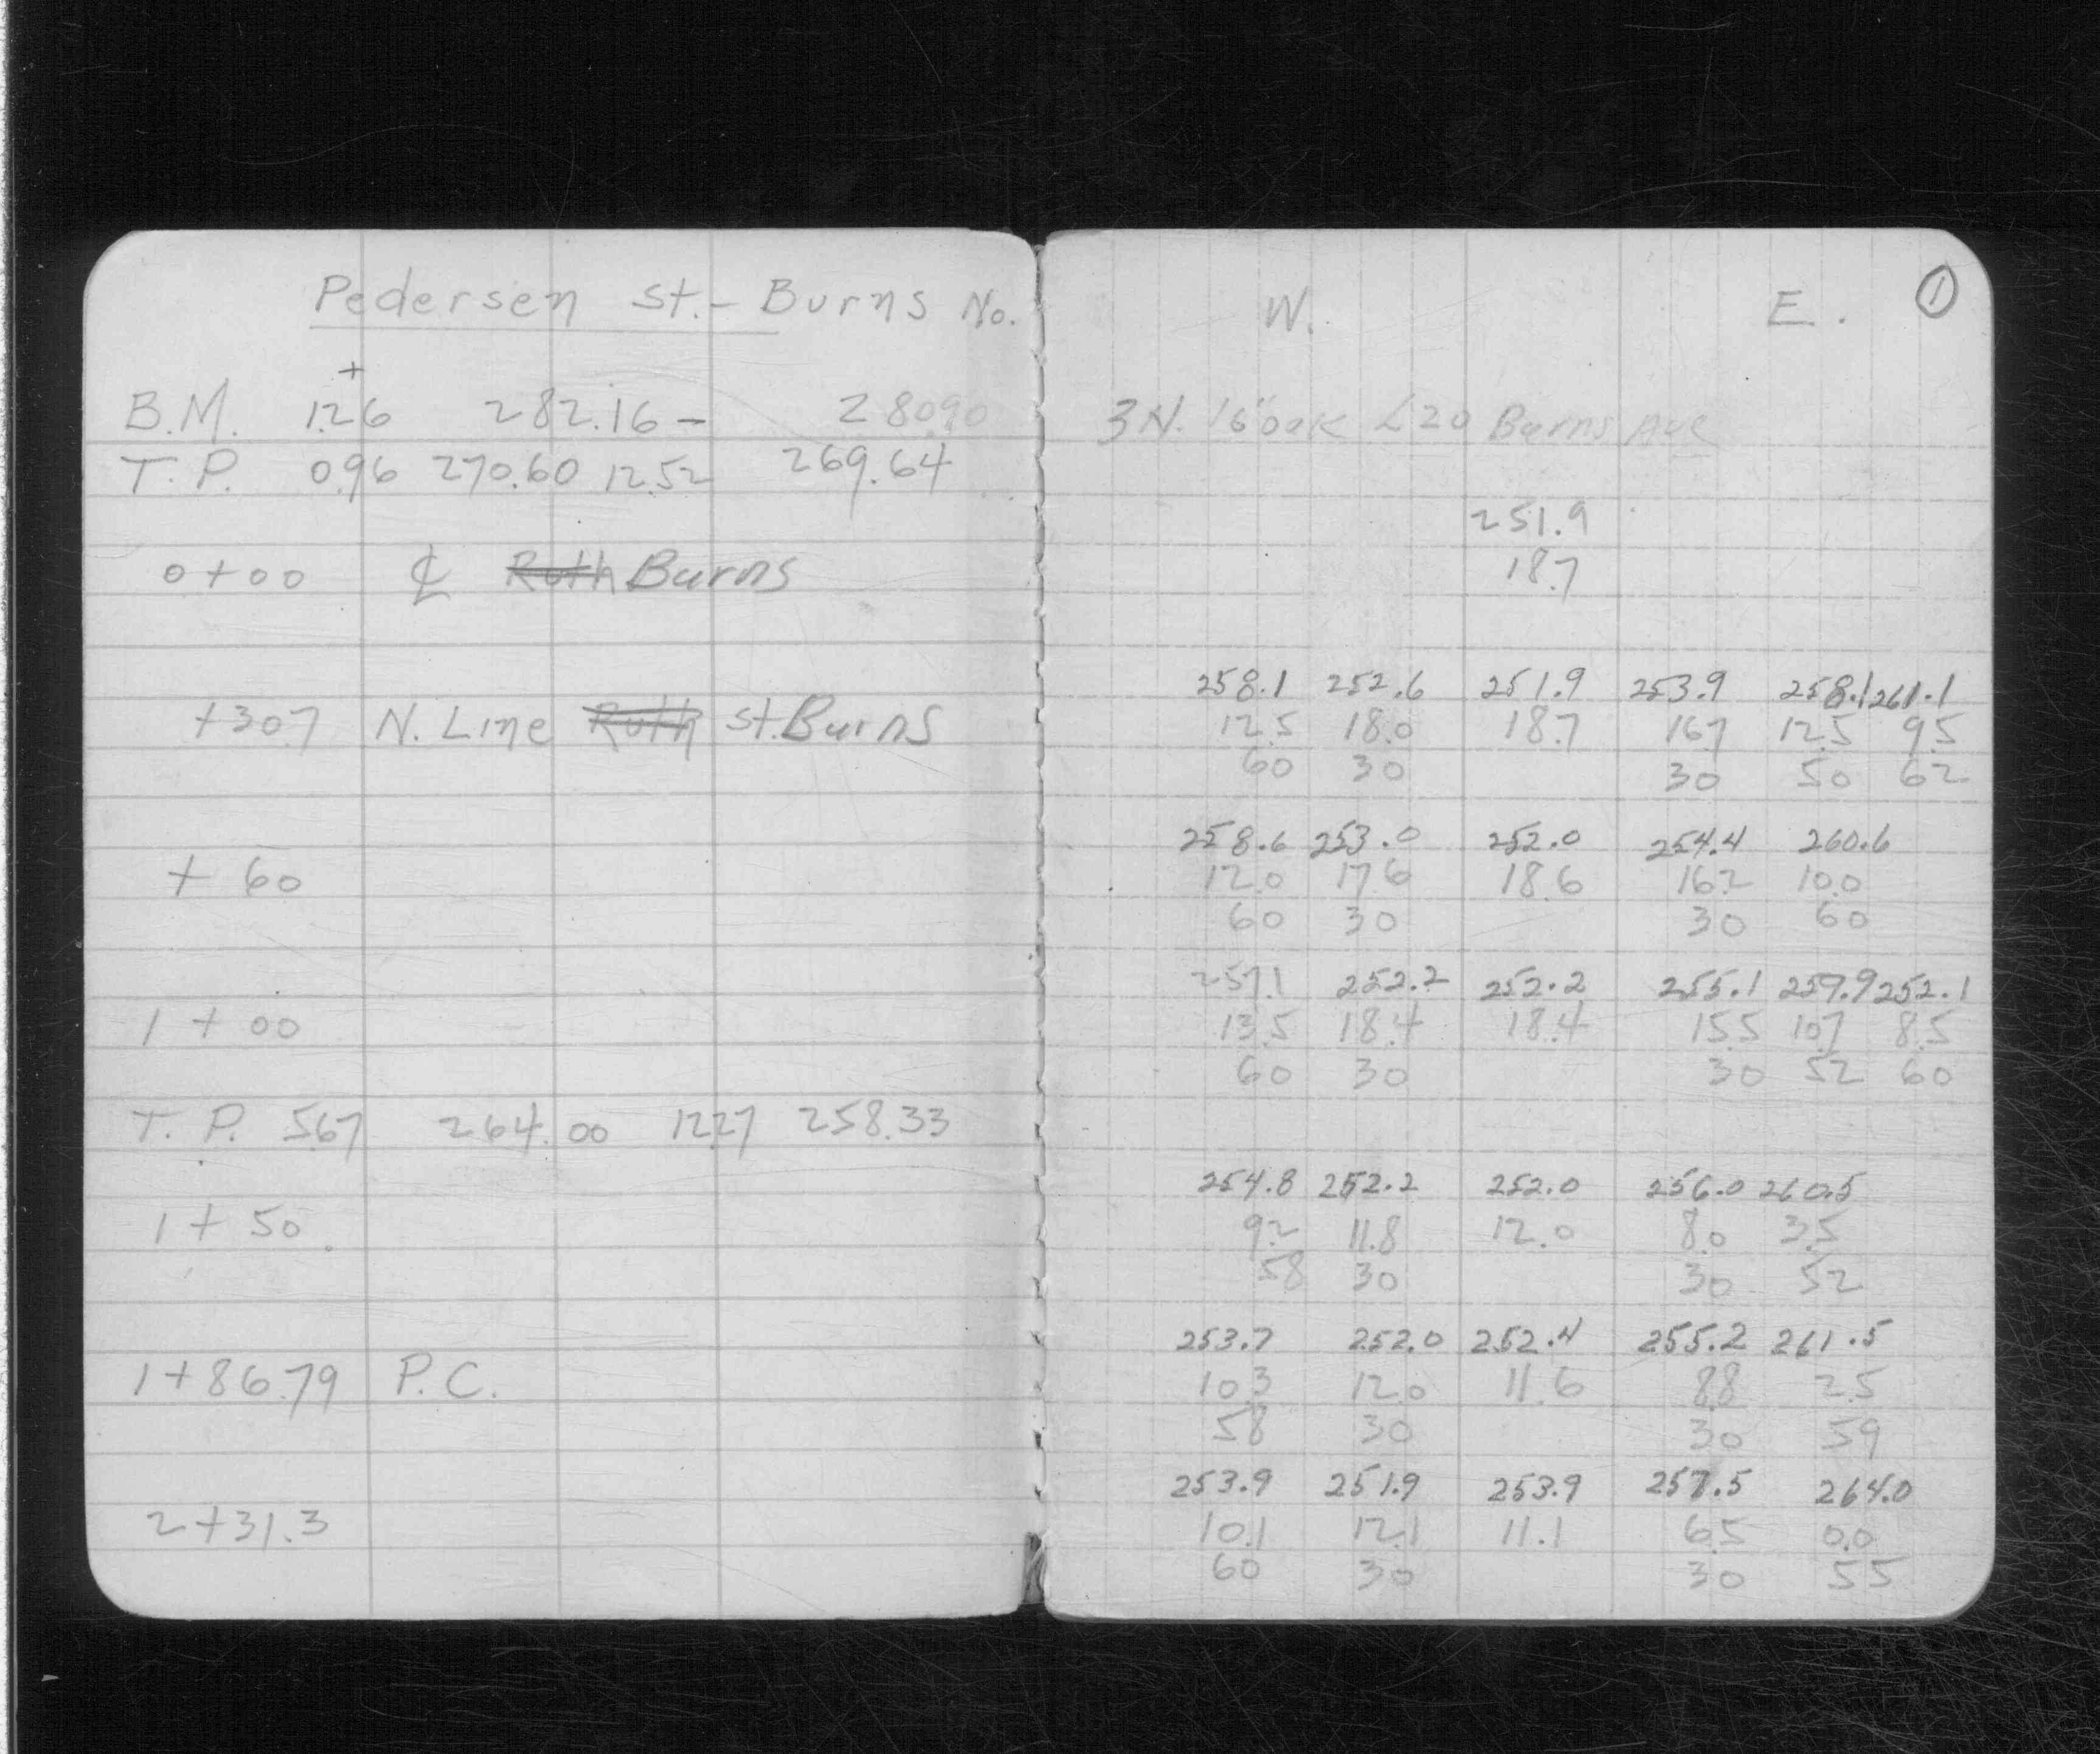 Pedersen St. - Burns No.
+
B.M. 1.26 282.16 - 280.90
T.P. 0.96 270.60 12.52 269.64
0+00 ℄ Ruth Burns
+30.7 N. Line Ruth St. Burns
+ 60
1 + 00
T.P. 5.67 264.00 12.27 258.33
1 + 50
1+86.79 P.C.
2+31.3
W. E. 1
3 N. 16" oak 20 Burns Ave
251.9
18.7
258.1 252.6 251.9 253.9 258.1 261.1
12.5 18.0 18.7 16.7 12.5 9.5
60 30 30 50 62
258.6 253.0 252.0 254.4 260.6
12.0 17.6 18.6 16.2 10.0
60 30 30 60
257.1 252.2 252.2 255.1 259.9 252.1
13.5 18.4 18.4 15.5 10.7 8.5
60 30 30 52 60
254.8 252.2 252.0 256.0 260.5
9.2 11.8 12.0 8.0 3.5
58 30 30 52
253.7 252.0 252.4 255.2 261.5
10.3 12.0 11.6 8.8 2.5
58 30 30 59
253.9 251.9 253.9 257.5 264.0
10.1 12.1 11.1 6.5 0.0
60 30 30 55